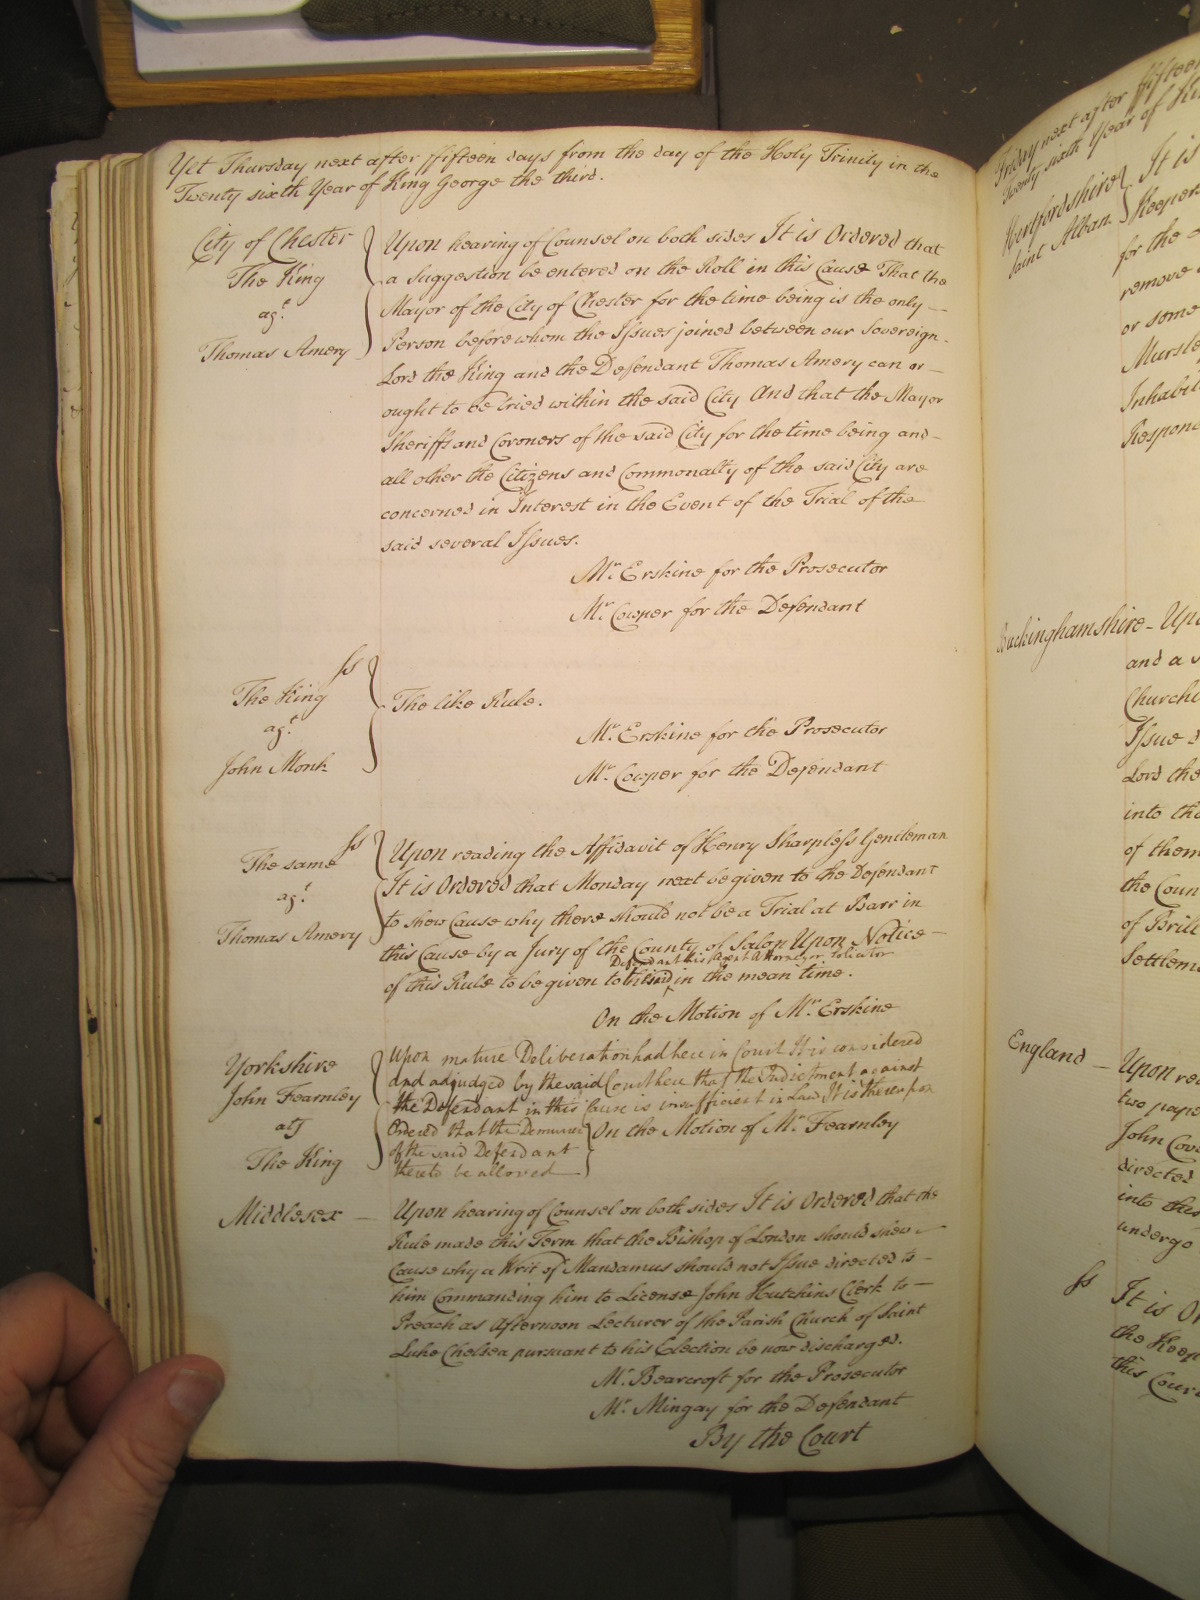 Yet Thursday next after fifteen days from the day of the Holy Trinity in the
Twenty sixth Year of King George the third.
City of Chester
The King
agt
Thomas Amery
Upon hearing of Counsel on both sides It is Ordered that
a Suggestion be entered on the Roll in this Cause That the
Mayor of the City of Chester for the time being is the only —
Person before whom the Issues joined between our Sovereign -
Lord the King and the Defendant Thomas Amery can or —
ought to be tried within the said City And that the Mayor
Sheriffs and Coroners of the said City for the time being and -
all other the Citizens and Commonalty of the said City are
concerned in Interest in the Event of the Trial of the
said several Issues.
Mr. Erskine for the Prosecutor
Mr. Cowper for the Defendant
ss
The King
agt
John Monk
The like Rule.
Mr. Erskine for the Prosecutor
Mr. Cowper for the Defendant
ss
The same
agt
Thomas Amery
Upon reading the Affidavit of Henry Sharpless Gentleman
It is Ordered that Monday next be given to the Defendant
to shew Cause why there should not be a Trial at Barr in
this Cause by a Jury of the County of Salop Upon Notice —
Defendant his Agent Attorney or Soliciter
of this Rule to be given to the said in the mean time.
On the Motion of Mr. Erskine
Yorkshire
John Fearnley
ats
The King
Upon mature Deliberation had here in Court It is considered
and adjudged by the said Court here that the Indictment against
the Defendant in this Cause is insufficient in Law It is thereupon
Ordered that the Demurrer
of the said Defendant
thereto be allowed —
On the Motion of Mr. Fearnley
Middlesex —
Upon hearing of Counsel on both sides It is Ordered that the
Rule made this Term that the Bishop of London should shew —
Cause why a Writ of Mandamus should not Issue directed to —
him Commanding him to License John Hutchins Clerk to —
Preach as Afternoon Lecturer of the Parish Church of Saint
Luke Chelsea pursuant to his Election be now discharged.
Mr. Bearcroft for the Prosecutor
Mr. Mingay for the Defendant
By the Court
Friday next after fifteen
Twenty sixth Year of
Hertfordshire
Saint Alban
It is
Keeper
for the
remove
or some
Inhabit
Respond
Buckinghamshire - Upo
and a
Churche
Issue
Lord the
into the
of them
the Coun
of Brill
Settlem
England —
Upon rea
two pape
John Cove
directed
into the
undergo
ss
It is Or
the Keep
this Cour